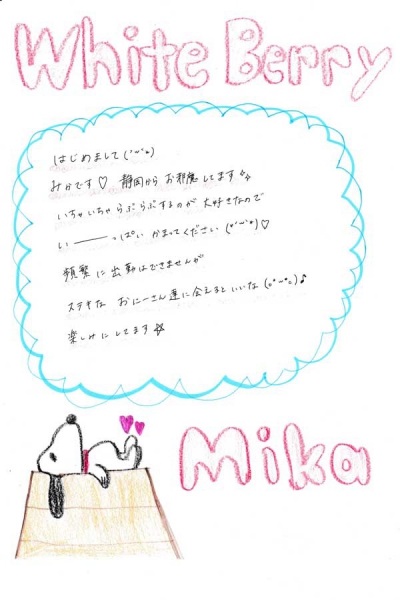 White Berry
はじめまして(˙꒳˙*)
みかです♡ 静岡からお邪魔してます✨
いちゃいちゃらぶらぶするのが大好きなので
い――――っぱい かまってください(*˙꒳˙*)♡
頻繁に出勤はできませんが
ステキな おにーさん達に会えるといいな(｡･꒳･｡)♪
楽しみにしてます☆
Mika